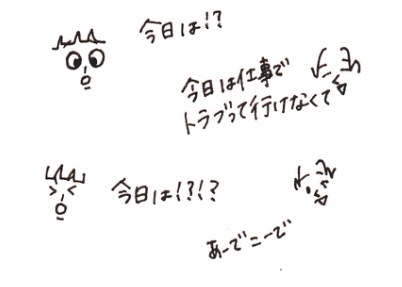 今日は!?
今日は仕事で
トラブって行けなくて
今日は!?!?
あーでこーで